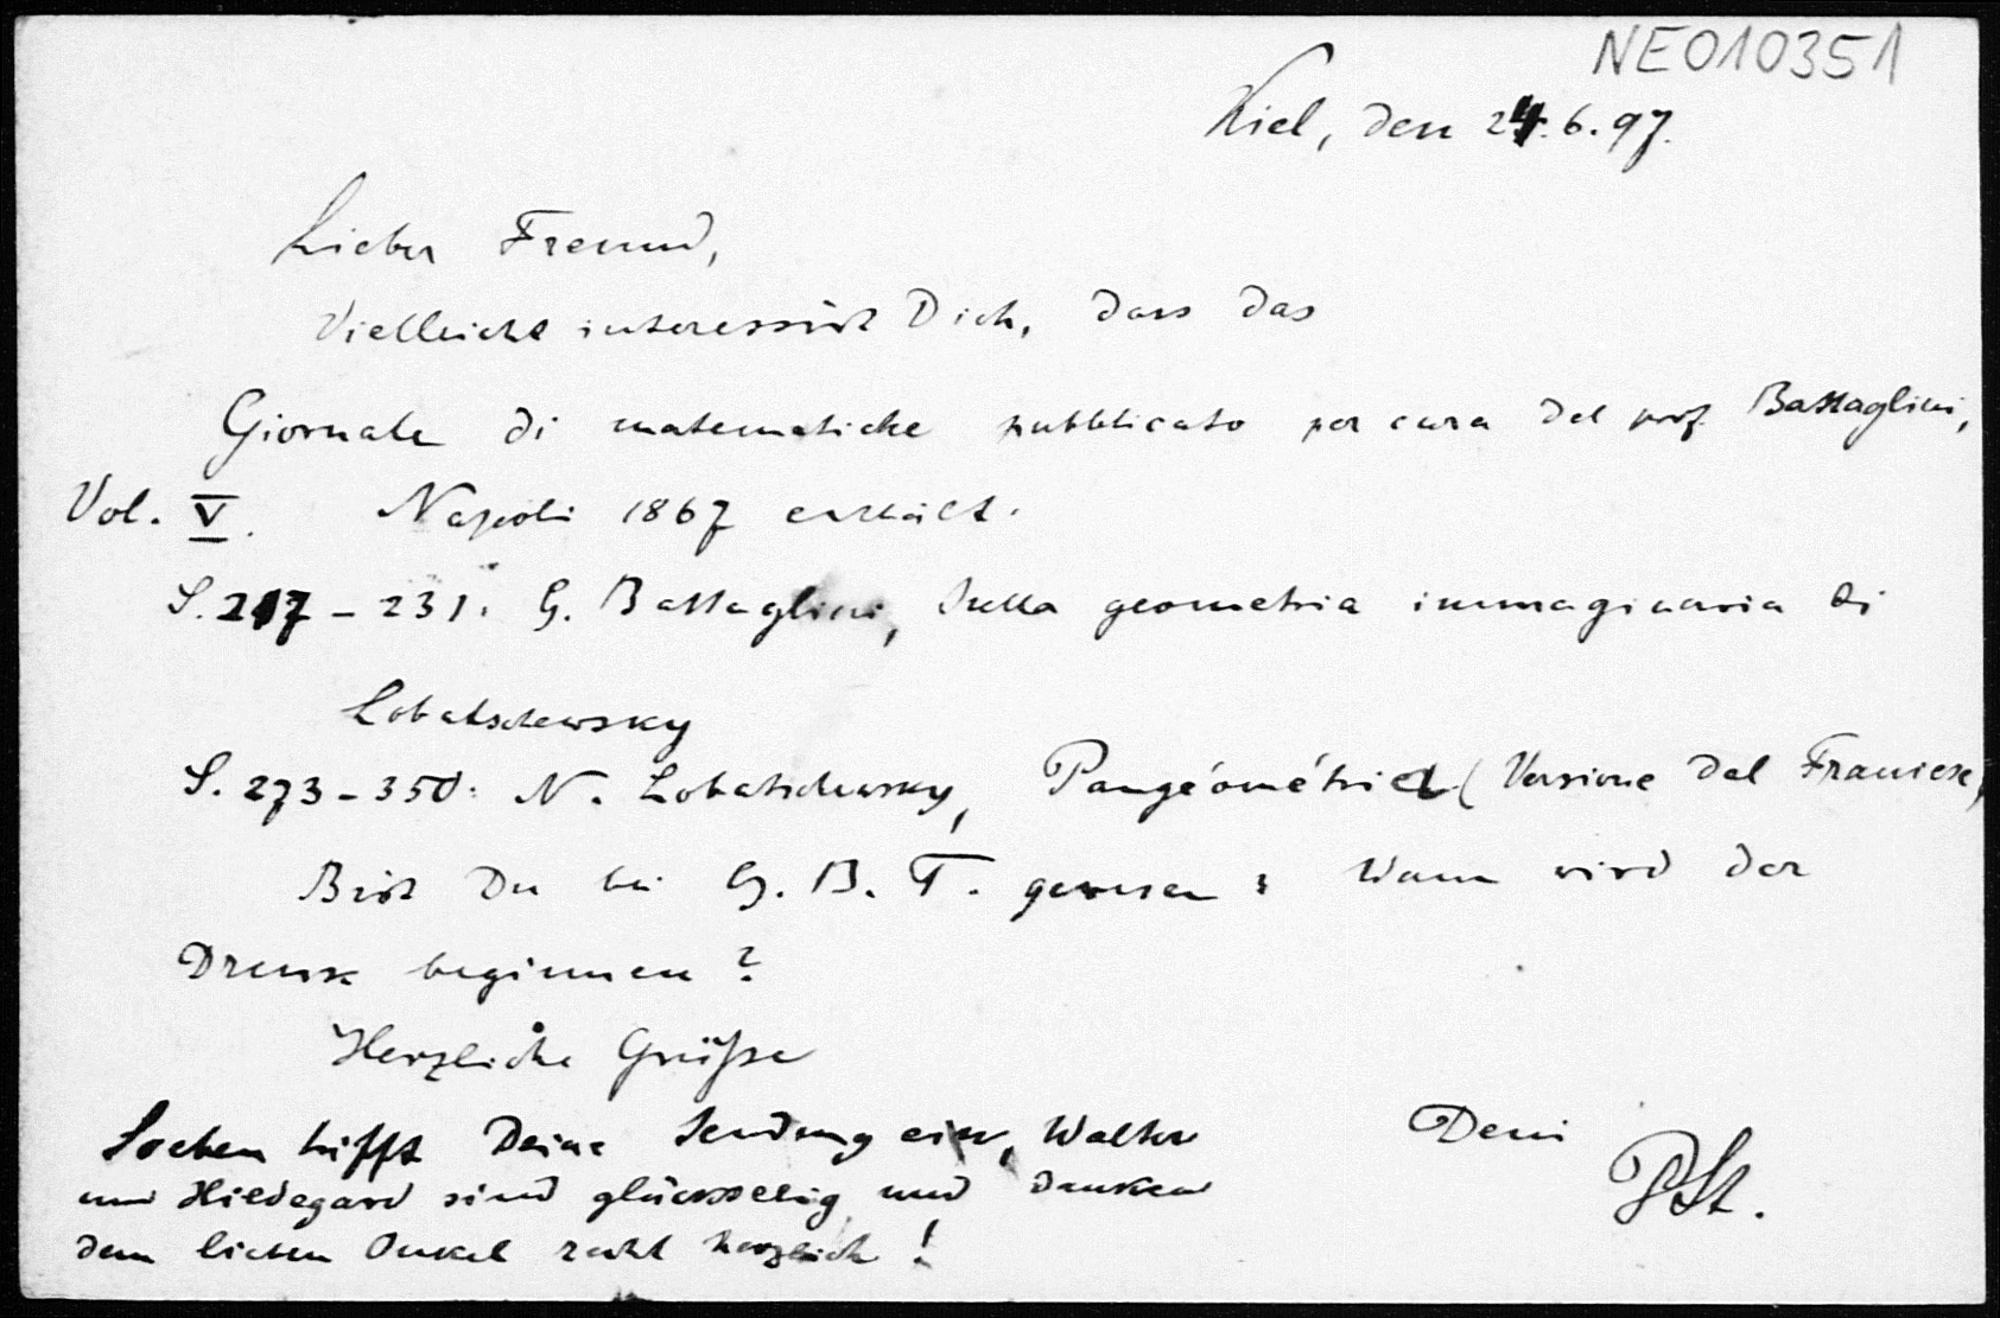 NE010351
Kiel, den 24.6.97.
Lieber Freund,
Vielleicht interessirt Dich, dass das
Giornale di matematiche pubblicato per cura del prof. Battaglini,
Vol. V. Napoli 1867 enthält.
S. 217-231: G. Battaglini, Sulla geometria immaginaria di
Lobatschewsky
S. 273-350: N. Lobatschewsky, Pangéométrie (Versione dal Francese)
Bist Du bei G. B. T. gewesen? Wann wird der
Druck beginnen?
Herzliche Grüße
Dein
PSt.
Soeben trifft Deine Sendung ein, Walter
und Hildegard sind glückselig und danken
dem lieben Onkel recht herzlich!